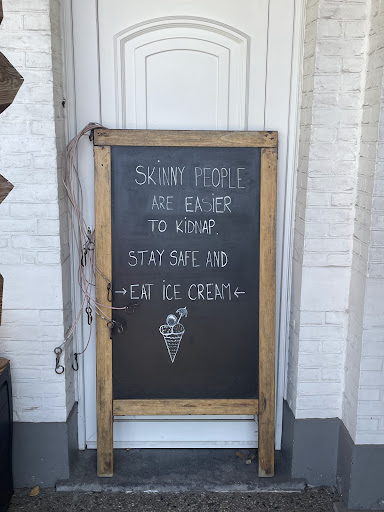 SKINNY PEOPLE
ARE EASIER
TO KIDNAP.
STAY SAFE AND
→EAT ICE CREAM←